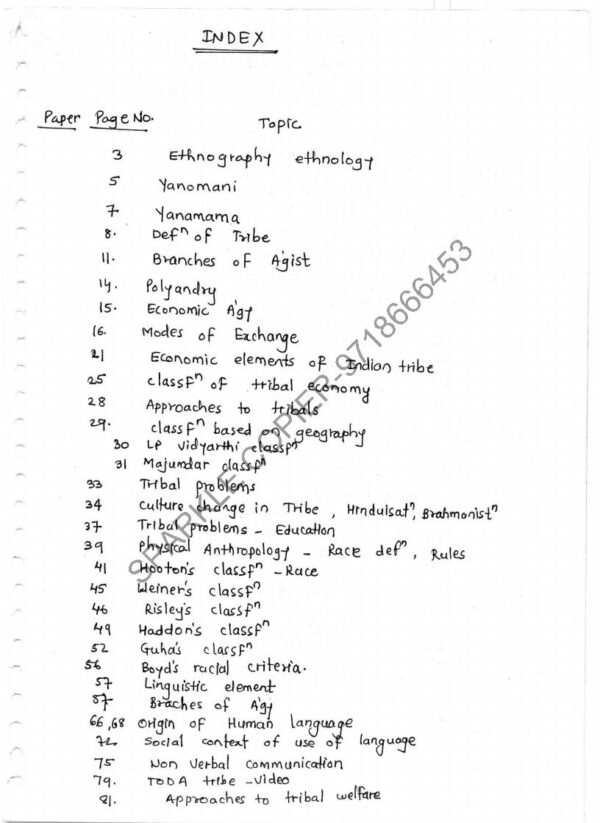 INDEX
Paper Page No. Topic
3 Ethnography ethnology
5 Yanomani
7 Yanamama
8. Defⁿ of Tribe
11. Branches of A'gist
14. Polyandry
15. Economic A'gy
16. Modes of Exchange
21 Economic elements of Indian tribe
25 classfⁿ of tribal economy
28 Approaches to tribals
29. classfⁿ based on geography
30 LP Vidyarthi classfⁿ
31 Majumdar classfⁿ
33 Tribal problems
34 Culture change in Tribe, Hinduisatⁿ, Brahmonistⁿ
37 Tribal problems - Education
39 Physical Anthropology - Race defⁿ, Rules
41 Hooton's classfⁿ - Race
45 Weiner's classfⁿ
46 Risley's classfⁿ
49 Haddon's classfⁿ
52 Guha's classfⁿ
56 Boyd's racial criteria.
57 Linguistic element
57 Braches of A'gy
66,68 Origin of Human language
72 Social context of use of language
75 Non Verbal Communication
79. TODA tribe - Video
81. Approaches to tribal welfare
SPARKLE COPIER-9718666453